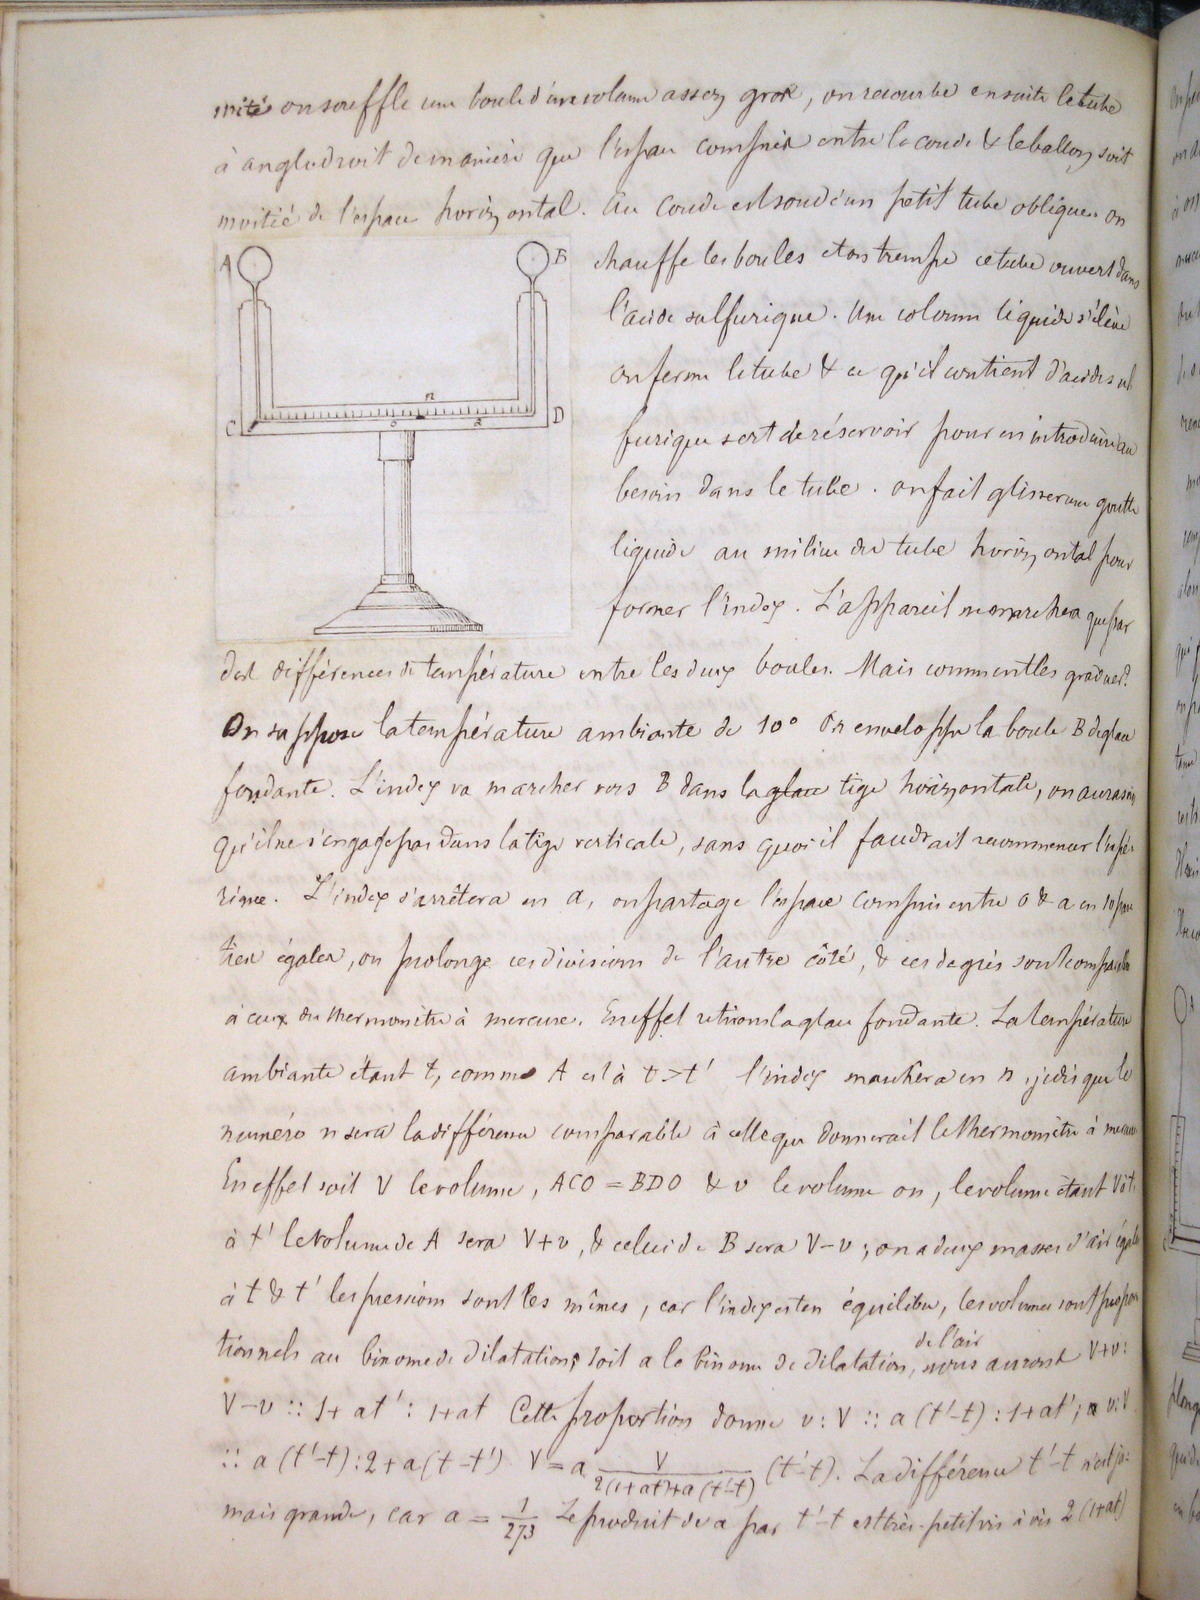 mité on souffle une boule d'un volume assez gros, on recourbe ensuite le tube
à angle droit de manière que l'espace compris entre le coude & le ballon soit
moitié de l'espace horizontal. Au coude est soudé un petit tube oblique. on
A
B
C
D
n
o
a
chauffe les boules et on trempe ce tube ouvert dans
l'acide sulfurique. Une colonne liquide s'élève
on ferme le tube & ce qu'il contient d'acide sul
furique sert de réservoir pour en introduire au
besoin dans le tube. on fait glisser une goutte
liquide au milieu du tube horizontal pour
former l'index. L'appareil ne marchera que par
des différences de température entre les deux boules. Mais comment les graduer?
On suppose la température ambiante de 10° On enveloppe la boule B de glace
fondante. L'index va marcher vers B dans la glace tige horizontale, on aura soin
qu'il ne s'engage pas dans la tige verticale, sans quoi il faudrait recommencer l'expé-
rience. L'index s'arrêtera en a, on partage l'espace compris entre o & a en 10 par
ties égales, on prolonge ces divisions de l'autre côté, & ces degrés sont comparables
à ceux du thermomètre à mercure. En effet retirons la glace fondante. La température
ambiante étant t, comme A est à t > t' l'index marchera en n, je dis que le
numéro n sera la différence comparable à celle que donnerait le thermomètre à mercure
En effet soit V le volume, ACO = BDO & v le volume on, le volume étant V à t.
à t' le volume de A sera V+v, & celui de B sera V-v; on a deux masses d'air égales
à t & t' les pressions sont les mêmes, car l'index est en équilibre, les volumes sont propor
tionnels au binome de dilatation; soit a le binome de dilatation, de l'air nous aurons V+v:
V-v :: 1+at' : 1+at Cette proportion donne v : V :: a(t'-t) : 1+at'; v : V
:: a(t'-t) : 2+a(t-t') V = a V/2(1+at)+a(t'-t) (t'-t). La différence t'-t n'est ja-
mais grande, car a = 1/273 Le produit de a par t'-t est très-petit vis à vis 2(1+at)